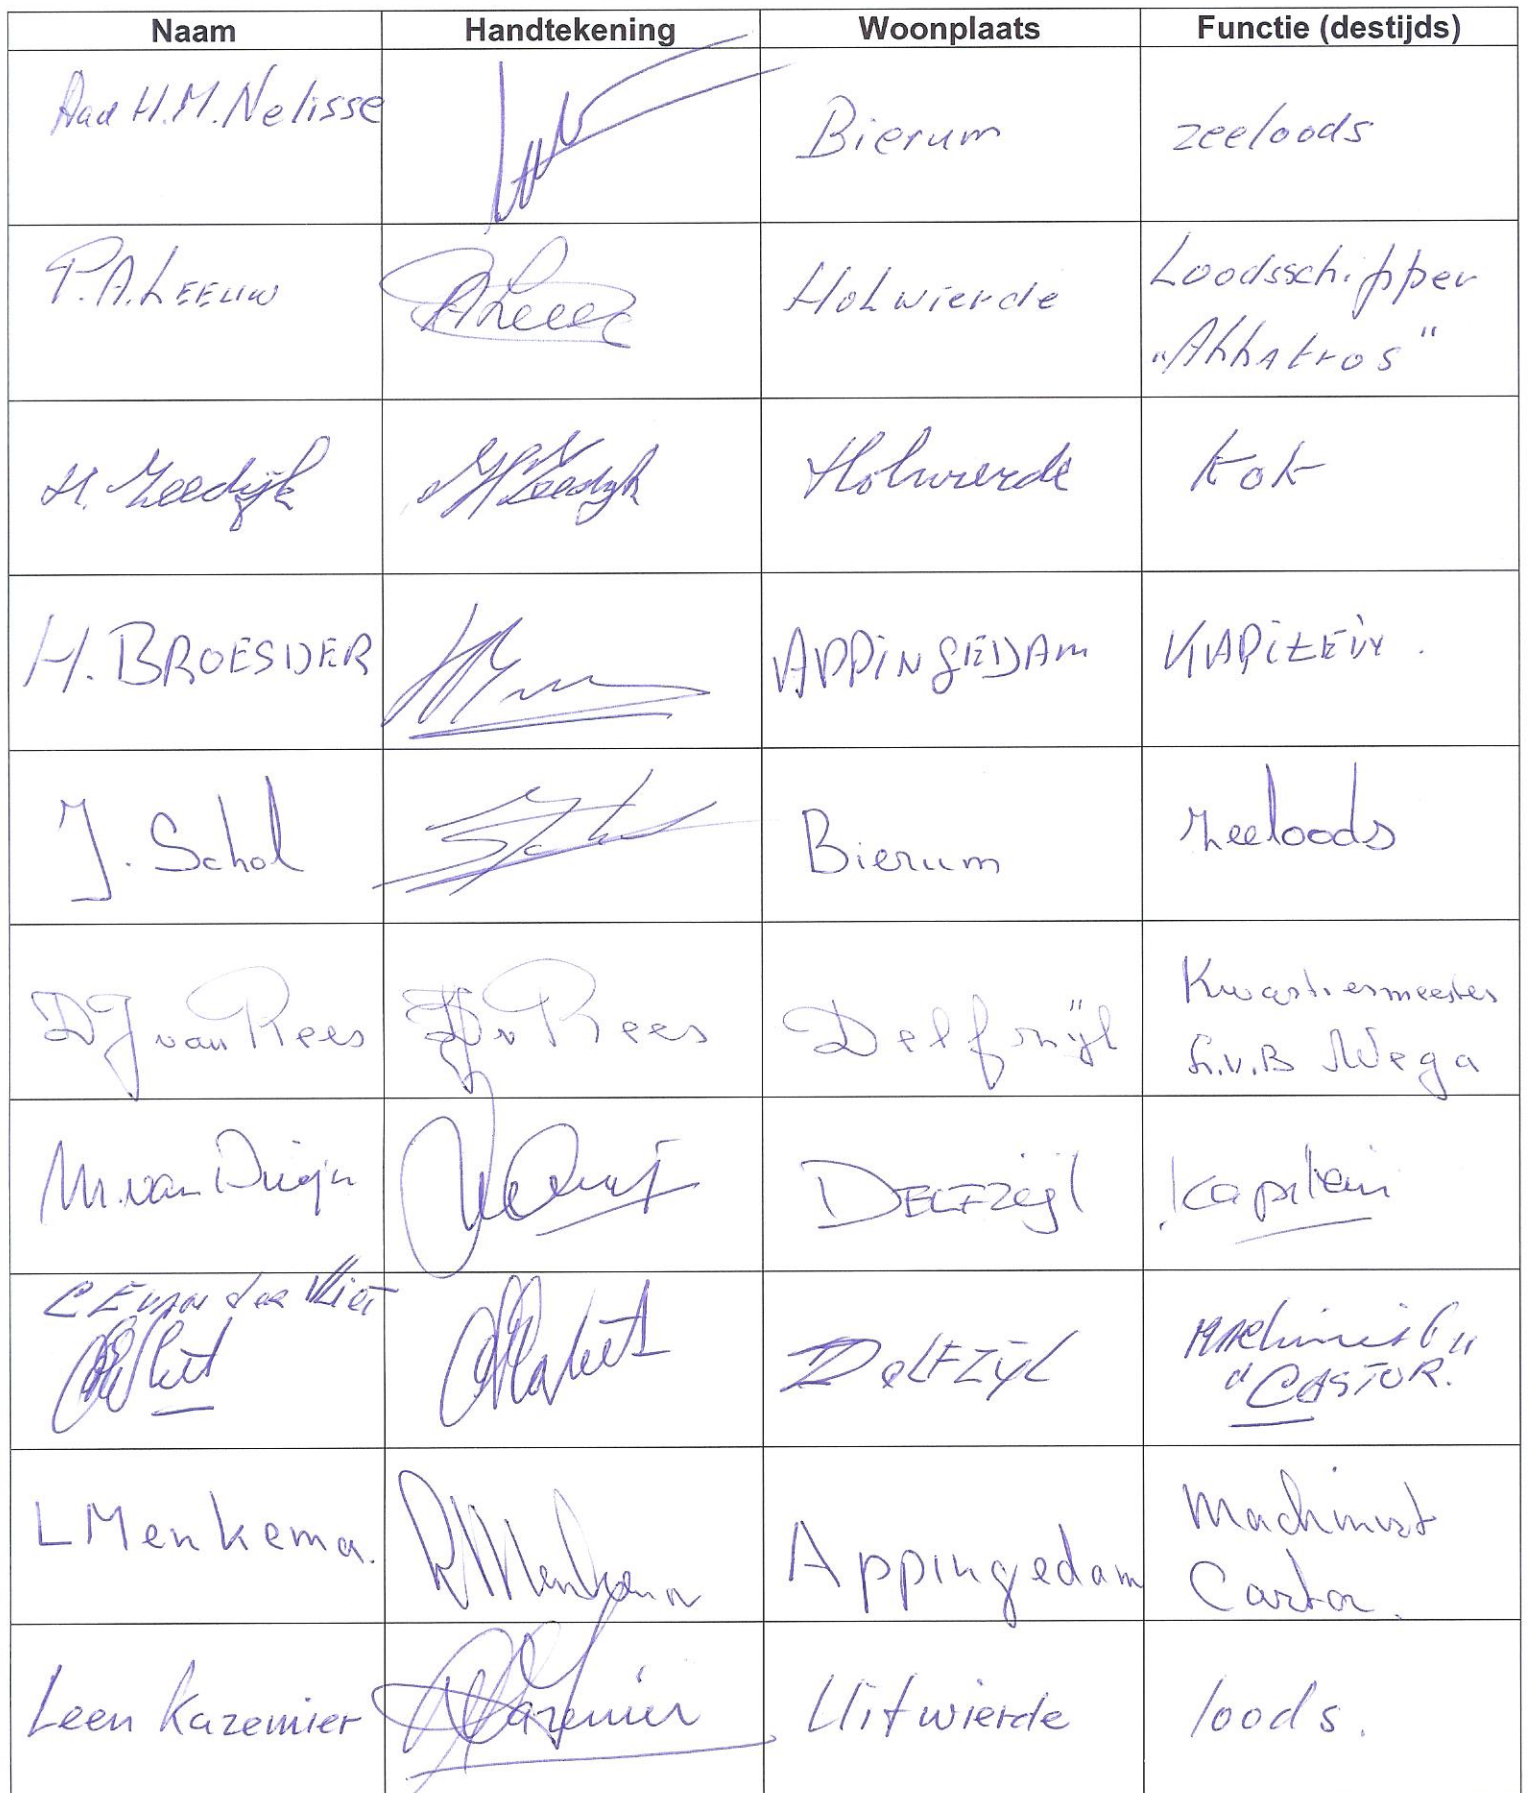 Naam Handtekening Woonplaats Functie (destijds)
Aad H.M. Nelisse Bierum zeeloods
P.A. LEEUW Holwierde Loodsschipper
"Albatros"
H. Zeedijk H Zeedijk Holwierde kok
H. BROESDER APPINGEDAM KAPITEIN.
J. Schol Bierum zeeloods
DJ van Rees DJ v Rees Delfzijl Kwartiermeester
h.v.B Wega
M. van Duijn DELFZijl Kapitein
C E van der Vliet DelFZijL Machinist
"CASTOR."
L Menkema. L Menkema Appingedam Machinist
Castor.
Leen Kazemier Kazemier Uitwierde loods.